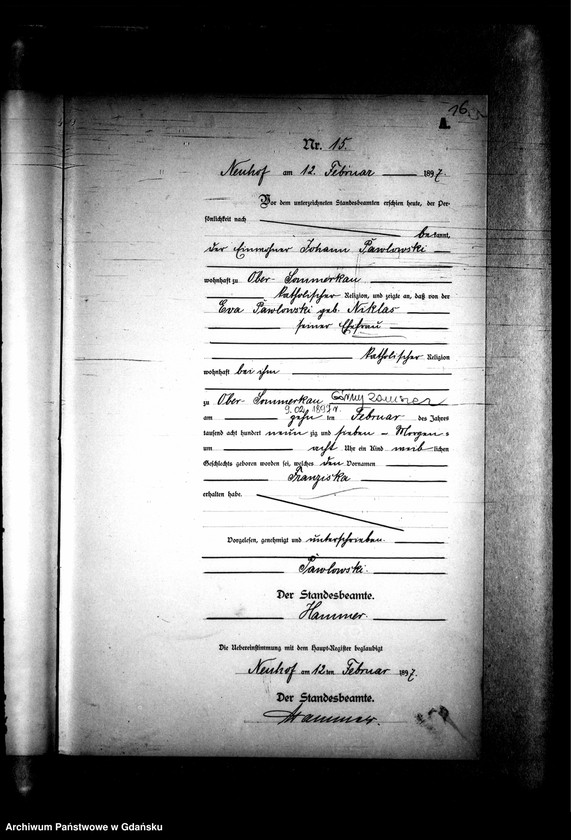 16
Nr. 15.
Neuhof am 12. Februar 1897.
Vor dem unterzeichneten Standesbeamten erschien heute, der Per-
sönlichkeit nach
bekannt,
der Einwohner Johann Pawlowski
wohnhaft zu Ober-Sommerkau
katholischer Religion, und zeigte an, daß von der
Eva Pawlowski geb. Niklas
seiner Ehefrau
katholischer Religion
wohnhaft bei ihm
zu Ober-Sommerkau
am zehn ten Februar des Jahres
tausend acht hundert neun zig und sieben - Morgens
um acht Uhr ein Kind weib lichen
Geschlechts geboren worden sei, welches den Vornamen
Franziska
erhalten habe.
Vorgelesen, genehmigt und unterschrieben.
Pawlowski.
Der Standesbeamte.
Hammer.
Die Uebereinstimmung mit dem Haupt-Register beglaubigt
Neuhof am 12 ten Februar 1897.
Der Standesbeamte.
Hammer.
Archiwum Państwowe w Gdańsku